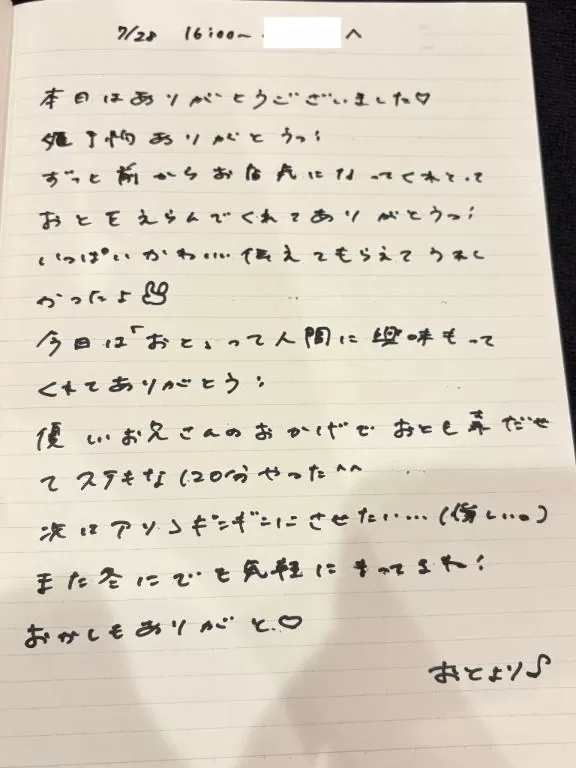 7/28 16:00〜 へ
本日はありがとうございました♡
姫予約ありがとうっ!
ずっと前からお店気になってくれとって
おとをえらんでくれてありがとうっ!
いっぱいかわいい伝えてもらえてうれし
かったよ
今日は「おと」って人間に興味もって
くれてありがとう!
優しいお兄さんのおかげで おとも素だせ
てステキな120分やった^^
次はアソコギンギンにさせたい…(悔しい。)
また冬にでも気軽にきってよね!
おかしもありがと♡
おとより♪